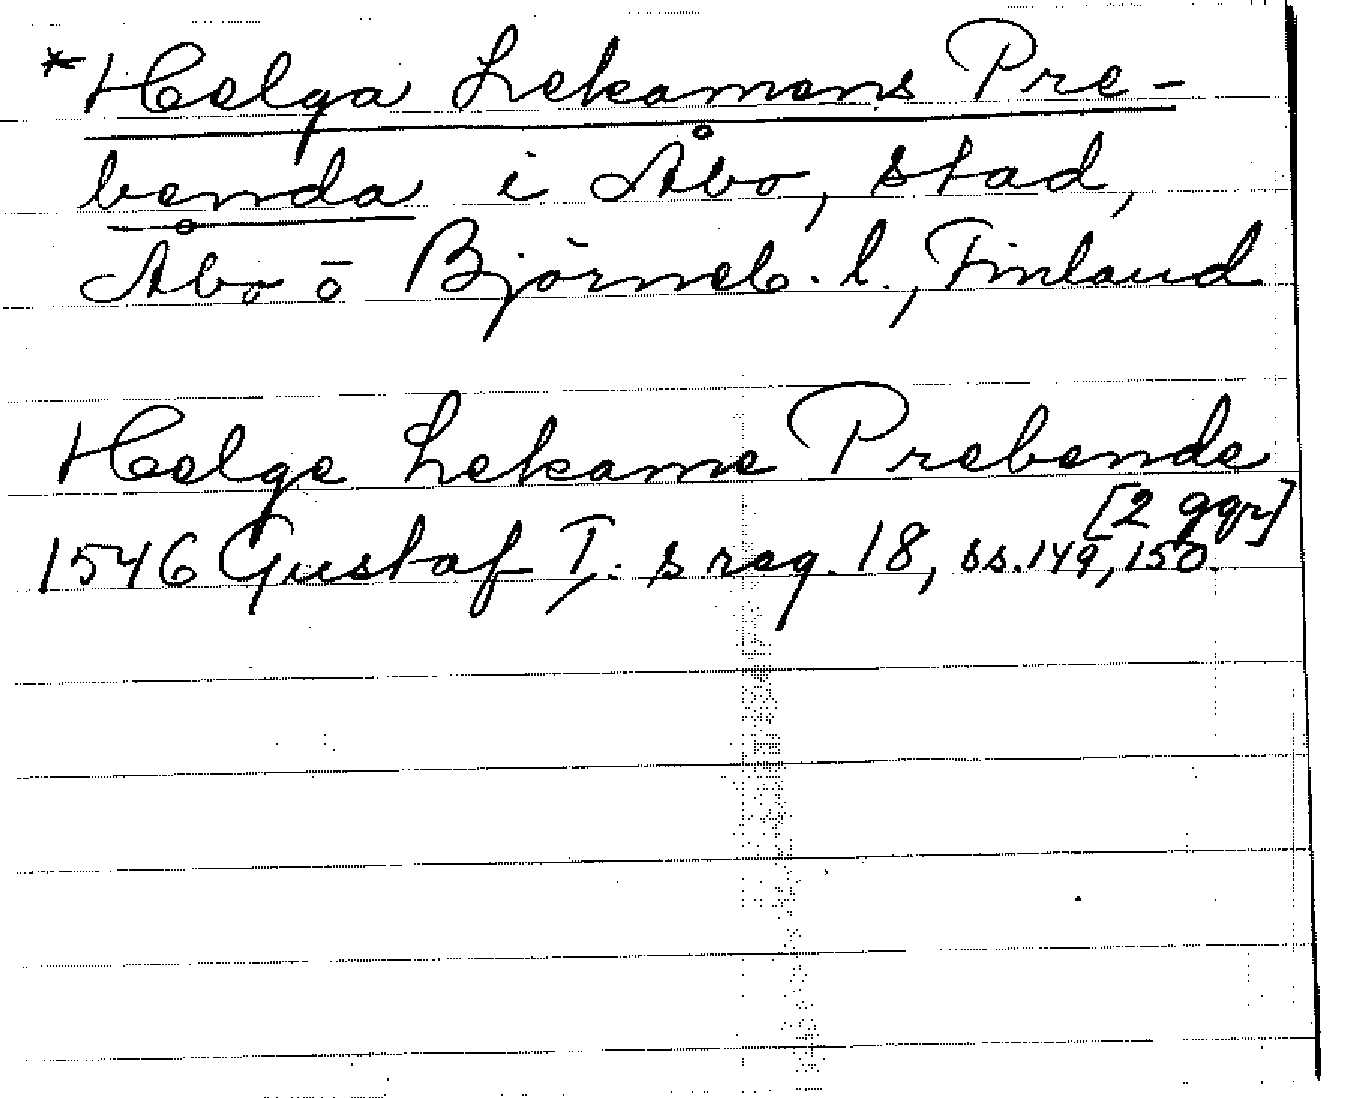 *Helga Lekamens Pre-
benda i Åbo, stad,
Åbo o Björneb. l., Finland
Helge Lekame Prebende
[2 ggr]
1546 Gustaf I:s reg. 18, ss. 149, 150.